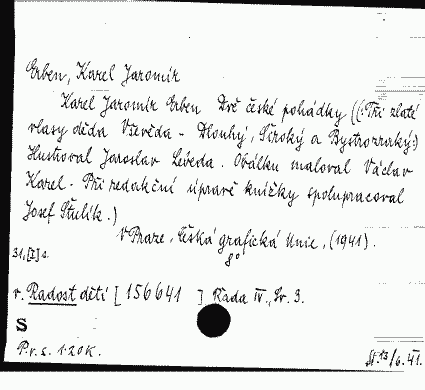 Erben, Karel Jaromír
Karel Jaromír Erben Dvě české pohádky ((:Tři zlaté
vlasy děda Vševěda - Dlouhý, Široký a Bystrozraký:)
Ilustroval Jaroslav Lebeda. Obálku maloval Václav
Karel. Při redakční úpravě knížky spolupracoval
Josef Štulík.)
V Praze, Česká grafická Unie, (1941).
31,[I] s. 8°
r. Radost dětí [156641] Řada IV., Sv. 3.
S
P.v.s. 1·20K. 13/6.41.